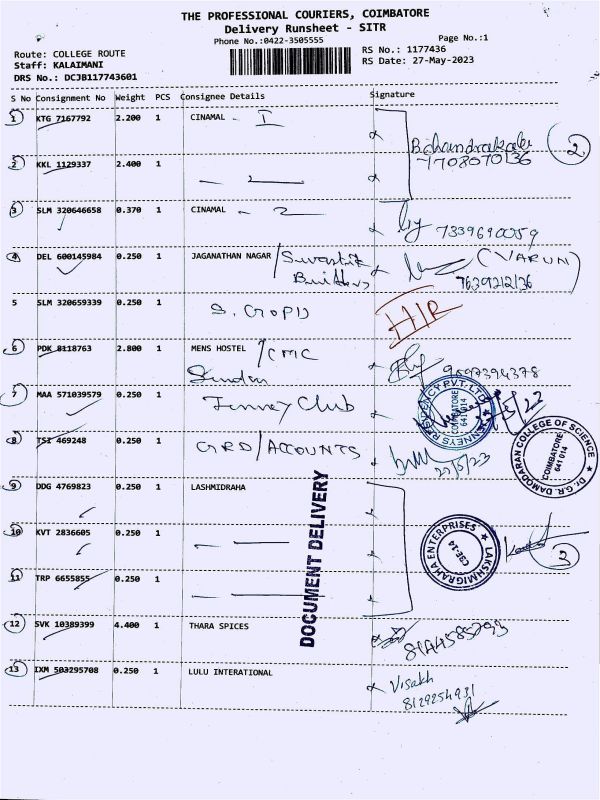 THE PROFESSIONAL COURIERS, COIMBATORE
Delivery Runsheet - SITR
Phone No.:0422-3505555
Page No.:1
Route: COLLEGE ROUTE
RS No.: 1177436
Staff: KALAIMANI
RS Date: 27-May-2023
DRS No.: DCJB117743601
S No Consignment No Weight PCS Consignee Details Signature
1 KTG 7167792 2.200 1 CINAMAL - I
2 KKL 1129337 2.400 1
B.chandrakala
2
3 SLM 320646658 0.370 1 CINAMAL - 2
7339690059
4 DEL 600145984 0.250 1 JAGANATHAN NAGAR / Swastik Builders
(VARUN)
5 SLM 320659339 0.250 1
H/R
6 PDK 8118763 2.800 1 MENS HOSTEL / CMC
7 MAA 571039579 0.250 1 Jenney Club
COIMBATORE 641 014
8 TSI 469248 0.250 1 GRD/ACCOUNTS
27/5/23
Dr. G.R. DAMODARAN COLLEGE OF SCIENCE
COIMBATORE 641 014
9 DDG 4769823 0.250 1 LASHMIDRAHA
DOCUMENT DELIVERY
10 KVT 2836605 0.250 1
LAKSHMIGRAHA ENTERPRISES
CBE-14
3
11 TRP 6655855 0.250 1
12 SVK 10389399 4.400 1 THARA SPICES
13 IXM 503295708 0.250 1 LULU INTERATIONAL
Visakh
8129254931